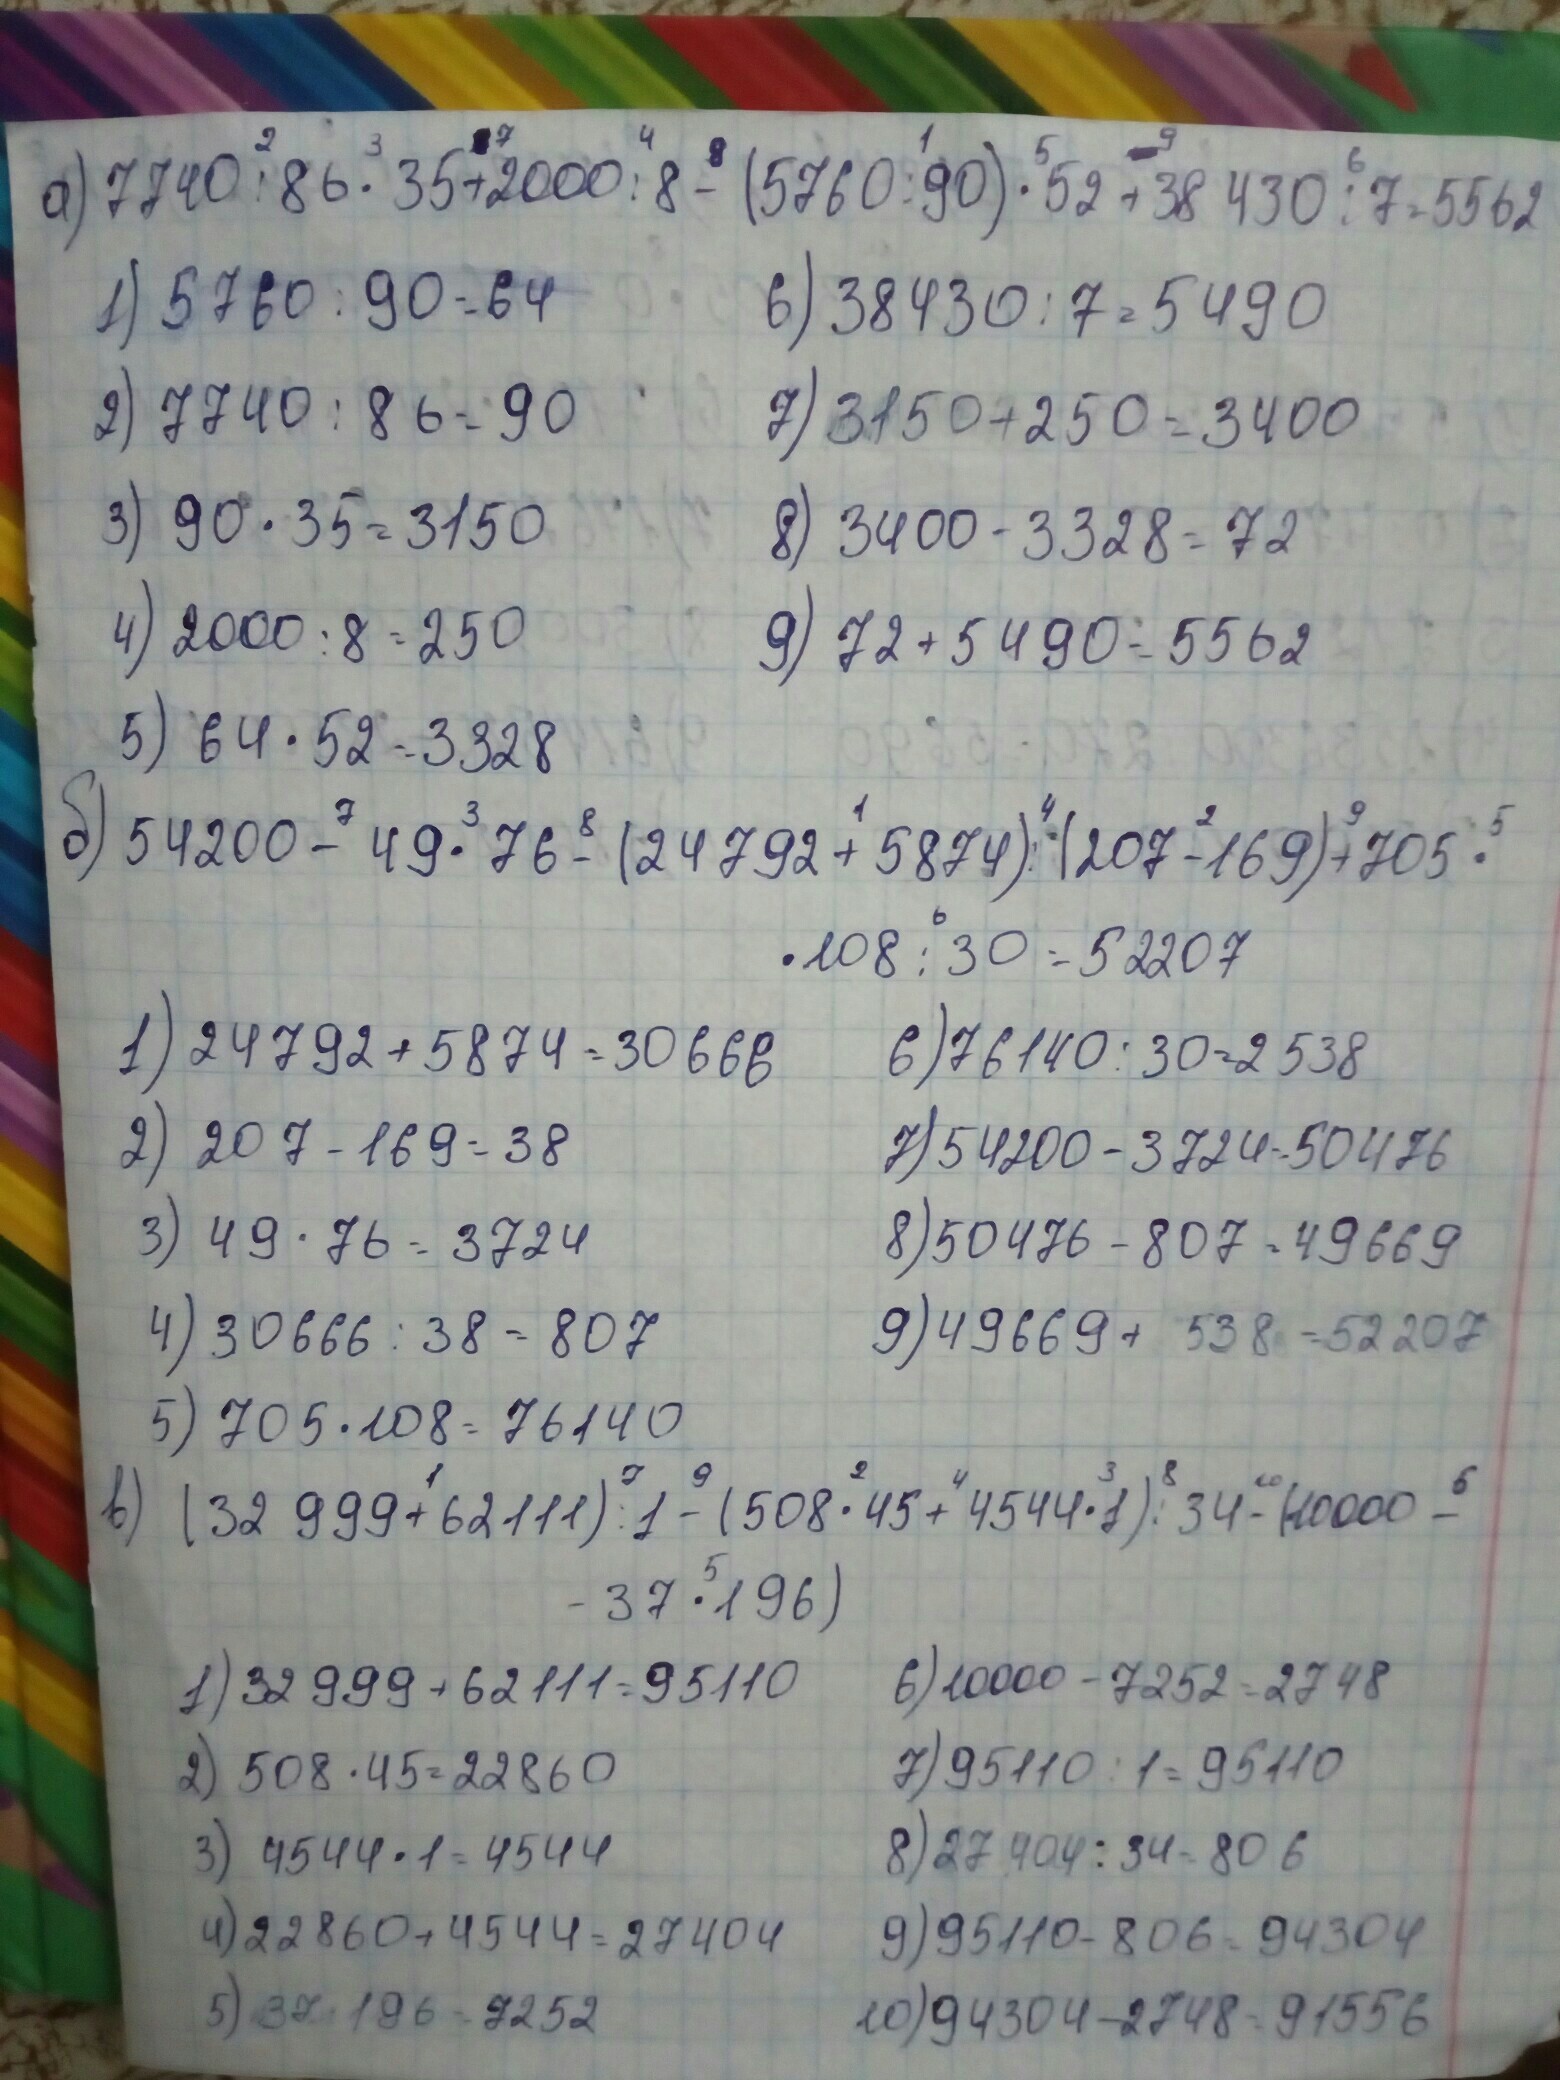 а) 7740 : 86 · 35 + 2000 : 8 - (5760 : 90) · 52 + 38 430 : 7 = 5562
1) 5760 : 90 = 64
2) 7740 : 86 = 90
3) 90 · 35 = 3150
4) 2000 : 8 = 250
5) 64 · 52 = 3328
6) 38430 : 7 = 5490
7) 3150 + 250 = 3400
8) 3400 - 3328 = 72
9) 72 + 5490 = 5562
б) 54200 - 49 · 76 - (24792 + 5874) : (207 - 169) + 705 ·
· 108 : 30 = 52207
1) 24792 + 5874 = 30666
2) 207 - 169 = 38
3) 49 · 76 = 3724
4) 30666 : 38 = 807
5) 705 · 108 = 76140
6) 76140 : 30 = 2538
7) 54200 - 3724 = 50476
8) 50476 - 807 = 49669
9) 49669 + 538 = 52207
в) (32 999 + 62111) : 1 - (508 · 45 + 4544 · 1) : 34 - (10000 -
- 37 · 196)
1) 32 999 + 62111 = 95110
2) 508 · 45 = 22860
3) 4544 · 1 = 4544
4) 22860 + 4544 = 27404
5) 37 · 196 = 7252
6) 10000 - 7252 = 2748
7) 95110 : 1 = 95110
8) 27 404 : 34 = 806
9) 95110 - 806 = 94304
10) 94304 - 2748 = 91556